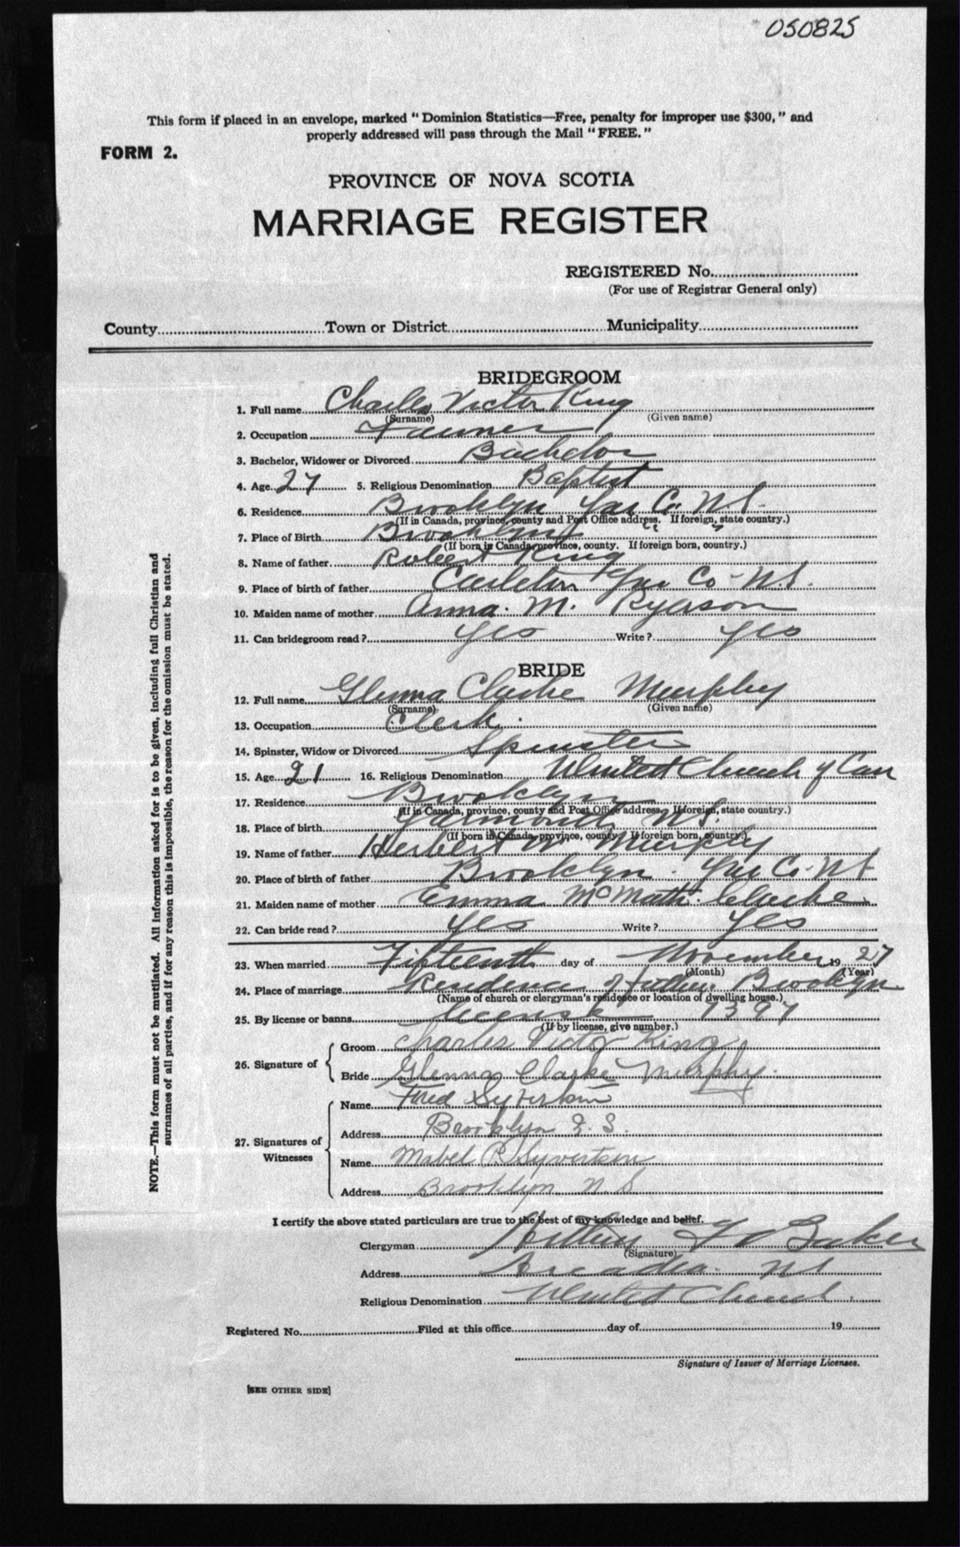 050825
This form if placed in an envelope, marked "Dominion Statistics—Free, penalty for improper use $300," and
properly addressed will pass through the Mail "FREE."
FORM 2.
PROVINCE OF NOVA SCOTIA
MARRIAGE REGISTER
REGISTERED No.
(For use of Registrar General only)
County Town or District Municipality
BRIDEGROOM
1. Full name Charles Victor King
(Surname) (Given name)
2. Occupation
3. Bachelor, Widower or Divorced Bachelor
4. Age 27 5. Religious Denomination Baptist
6. Residence Brooklyn Yar Co. N.S.
(If in Canada, province, county and Post Office address. If foreign, state country.)
7. Place of Birth Brooklyn
(If born in Canada, province, county. If foreign born, country.)
8. Name of father Robert King
9. Place of birth of father Carleton Yar Co - N.S.
10. Maiden name of mother Anna. M. Ryerson
11. Can bridegroom read? Yes Write? Yes
BRIDE
12. Full name Glenna Clarke Murphy
(Surname) (Given name)
13. Occupation Clerk.
14. Spinster, Widow or Divorced Spinster
15. Age 21 16. Religious Denomination United Church of Can
17. Residence Brooklyn
(If in Canada, province, county and Post Office address. If foreign, state country.)
18. Place of birth Yarmouth N.S.
(If born in Canada, province, county. If foreign born, country.)
19. Name of father Herbert W Murphy
20. Place of birth of father Brooklyn. Yar Co. NS
21. Maiden name of mother Emma Clarke
22. Can bride read? Yes Write? Yes
23. When married Fifteenth day of November 1927
(Month) (Year)
24. Place of marriage Residence of father. Brooklyn
(Name of church or clergyman's residence or location of dwelling house.)
25. By license or banns license 7397
(If by license, give number.)
26. Signature of
Groom Charles Victor King
Bride Glenna Clarke Murphy.
27. Signatures of Witnesses
Name Fred Syvertsen
Address Brooklyn N.S.
Name Mabel R. Syvertsen
Address Brooklyn N.S
I certify the above stated particulars are true to the best of my knowledge and belief.
Clergyman Arthur Baker
(Signature)
Address Arcadia. NS
Religious Denomination United Church.
Registered No. Filed at this office day of 19
Signature of Issuer of Marriage Licenses.
[SEE OTHER SIDE]
NOTE.—This form must not be mutilated. All information asked for is to be given, including full Christian and
surnames of all parties, and if for any reason this is impossible, the reason for the omission must be stated.